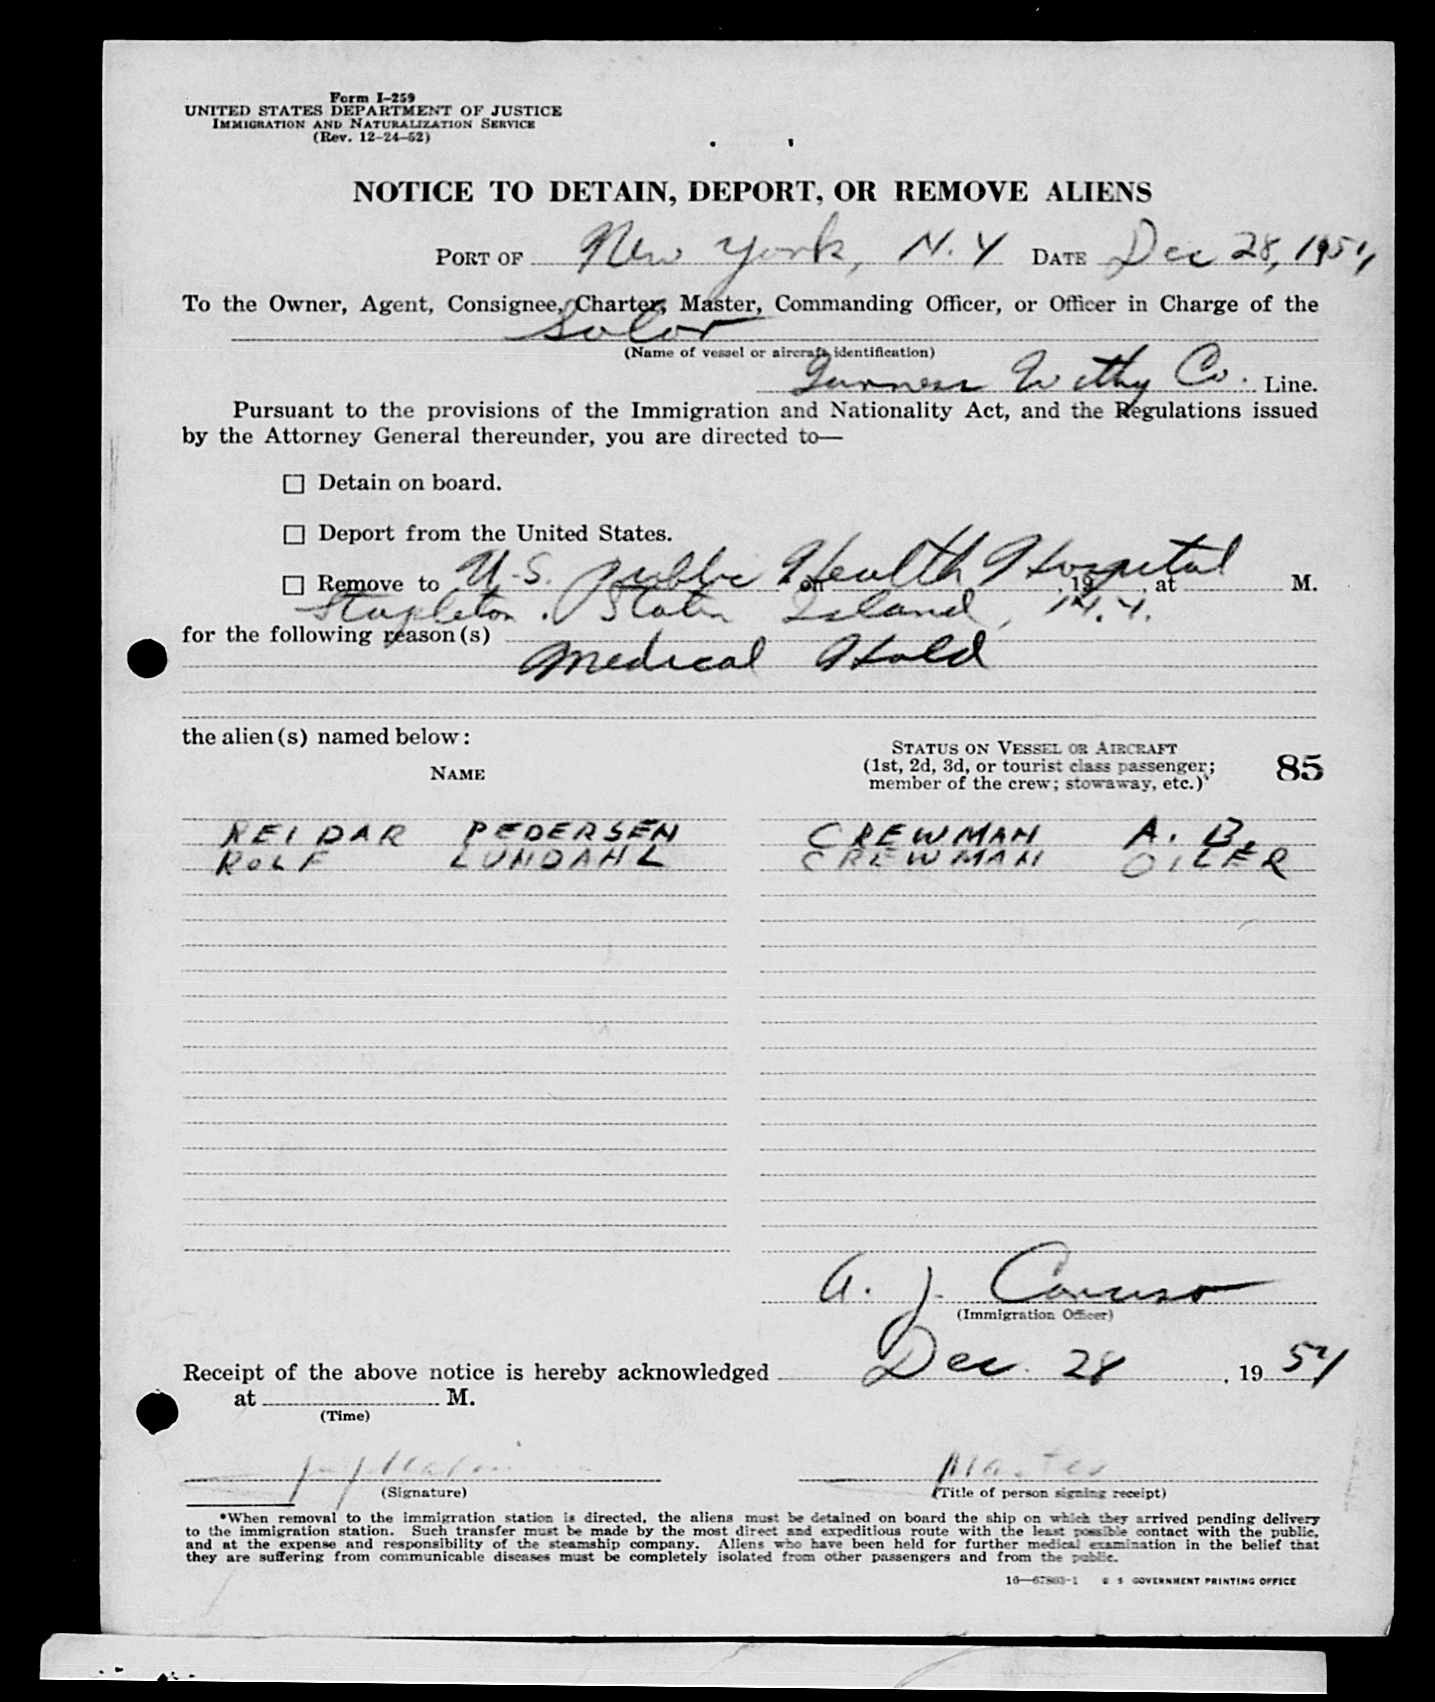 Form I-259
UNITED STATES DEPARTMENT OF JUSTICE
IMMIGRATION AND NATURALIZATION SERVICE
(Rev. 12-24-52)
NOTICE TO DETAIN, DEPORT, OR REMOVE ALIENS
PORT OF New York, N.Y DATE Dec 28, 1954
To the Owner, Agent, Consignee, Charter, Master, Commanding Officer, or Officer in Charge of the
Solor
(Name of vessel or aircraft identification)
Furness Withy Co. Line.
Pursuant to the provisions of the Immigration and Nationality Act, and the Regulations issued
by the Attorney General thereunder, you are directed to—
☐ Detain on board.
☐ Deport from the United States.
☐ Remove to U.S. Public Health Hospital on , 19 , at M.
Stapleton, Staten Island, N.Y.
for the following reason(s)
Medical Hold
the alien(s) named below:
STATUS ON VESSEL OR AIRCRAFT
(1st, 2d, 3d, or tourist class passenger;
member of the crew; stowaway, etc.)
85
NAME
REIDAR PEDERSEN CREWMAN A. B.
ROLF LUNDAHL CREWMAN OILER
A. J. Caruso
(Immigration Officer)
Receipt of the above notice is hereby acknowledged Dec. 28, 1954
at M.
(Time)
Master
(Signature) (Title of person signing receipt)
*When removal to the immigration station is directed, the aliens must be detained on board the ship on which they arrived pending delivery
to the immigration station. Such transfer must be made by the most direct and expeditious route with the least possible contact with the public,
and at the expense and responsibility of the steamship company. Aliens who have been held for further medical examination in the belief that
they are suffering from communicable diseases must be completely isolated from other passengers and from the public.
16—67803-1 U S GOVERNMENT PRINTING OFFICE